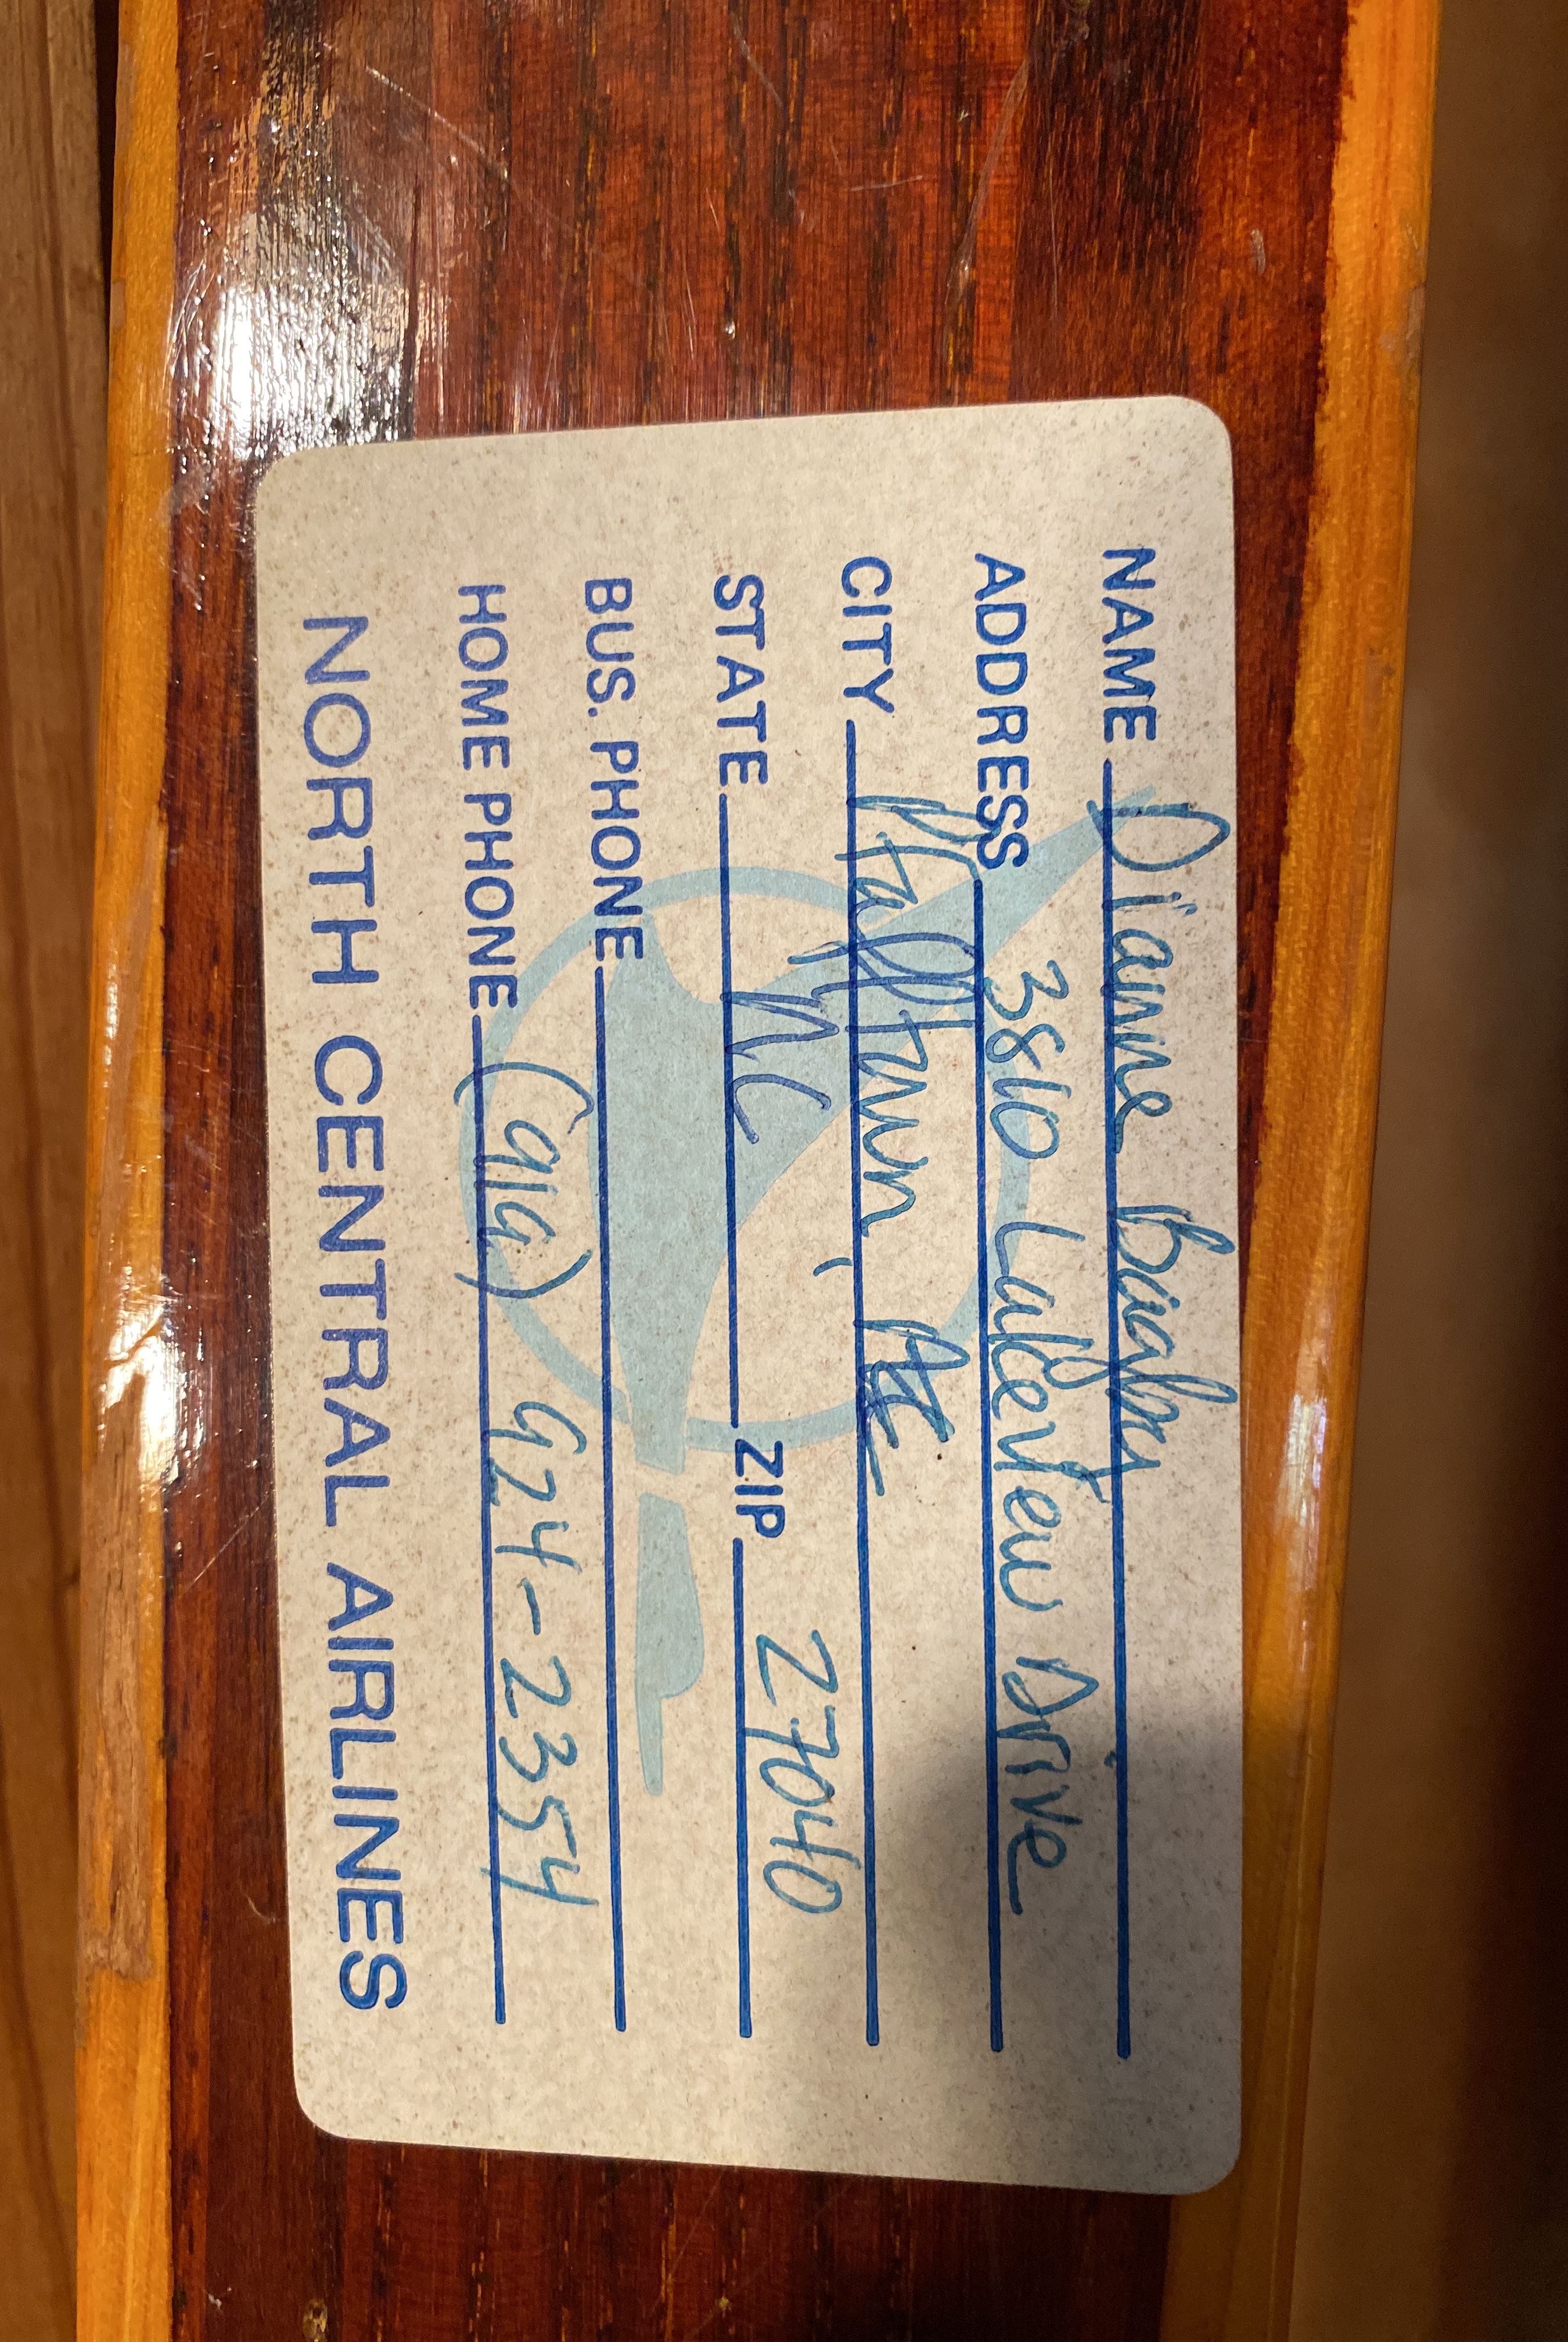 NAME Dianne Bagley
ADDRESS 3810 Lakeview Drive
CITY Pfafftown,
STATE NC ZIP 27040
BUS. PHONE
HOME PHONE (919) 924-2354
NORTH CENTRAL AIRLINES